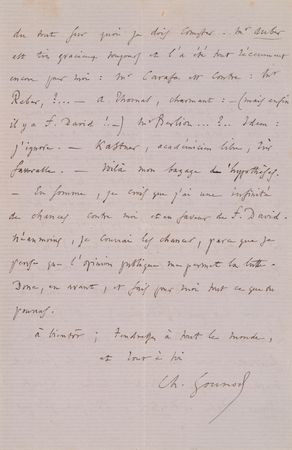 du tout sur quoi je dois compter. Mr Auber
est très gracieux toujours et l'a été tout récemment
encore pour moi : Mr Carafa est contre : Mr
Reber, ?... — A. Thomas, charmant : — (mais enfin
il y a F. David !—) Mr Berlioz ...?.. Idem :
j'ignore. — Kastner, académicien libre, très
favorable. — Voilà mon bagage d'hypothèses.
— En somme, je crois que j'ai une infinité
de chances contre moi et en faveur de F. David.
Néanmoins, je courrai les chances, parce que je
pense que l'opinion publique me permet la lutte.
Donc, en avant, et fais pour moi tout ce que tu
pourras.
à bientôt ; tendresses à tout le monde,
et tout à toi
Ch. Gounod